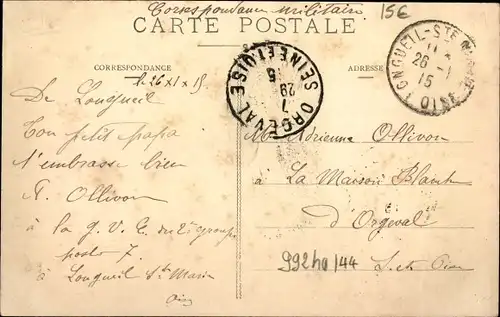 Correspondance militaire
15€
CARTE POSTALE
CORRESPONDANCE
ADRESSE
le 26 X 1 X 15
De Longueil
Ton petit papa
t'embrasse bien
A. Ollivon
à la G. V. C. du 2e groupe
poste 7
à Longueil Ste Marie
Oise
LONGUEIL-STE MARIE
26 - 1
15
OISE
ORGEVAL
7
29
5
SEINE ET OISE
Adrienne Ollivon
à La Maison Blanche
d'Orgeval
S. et Oise
992ho/44